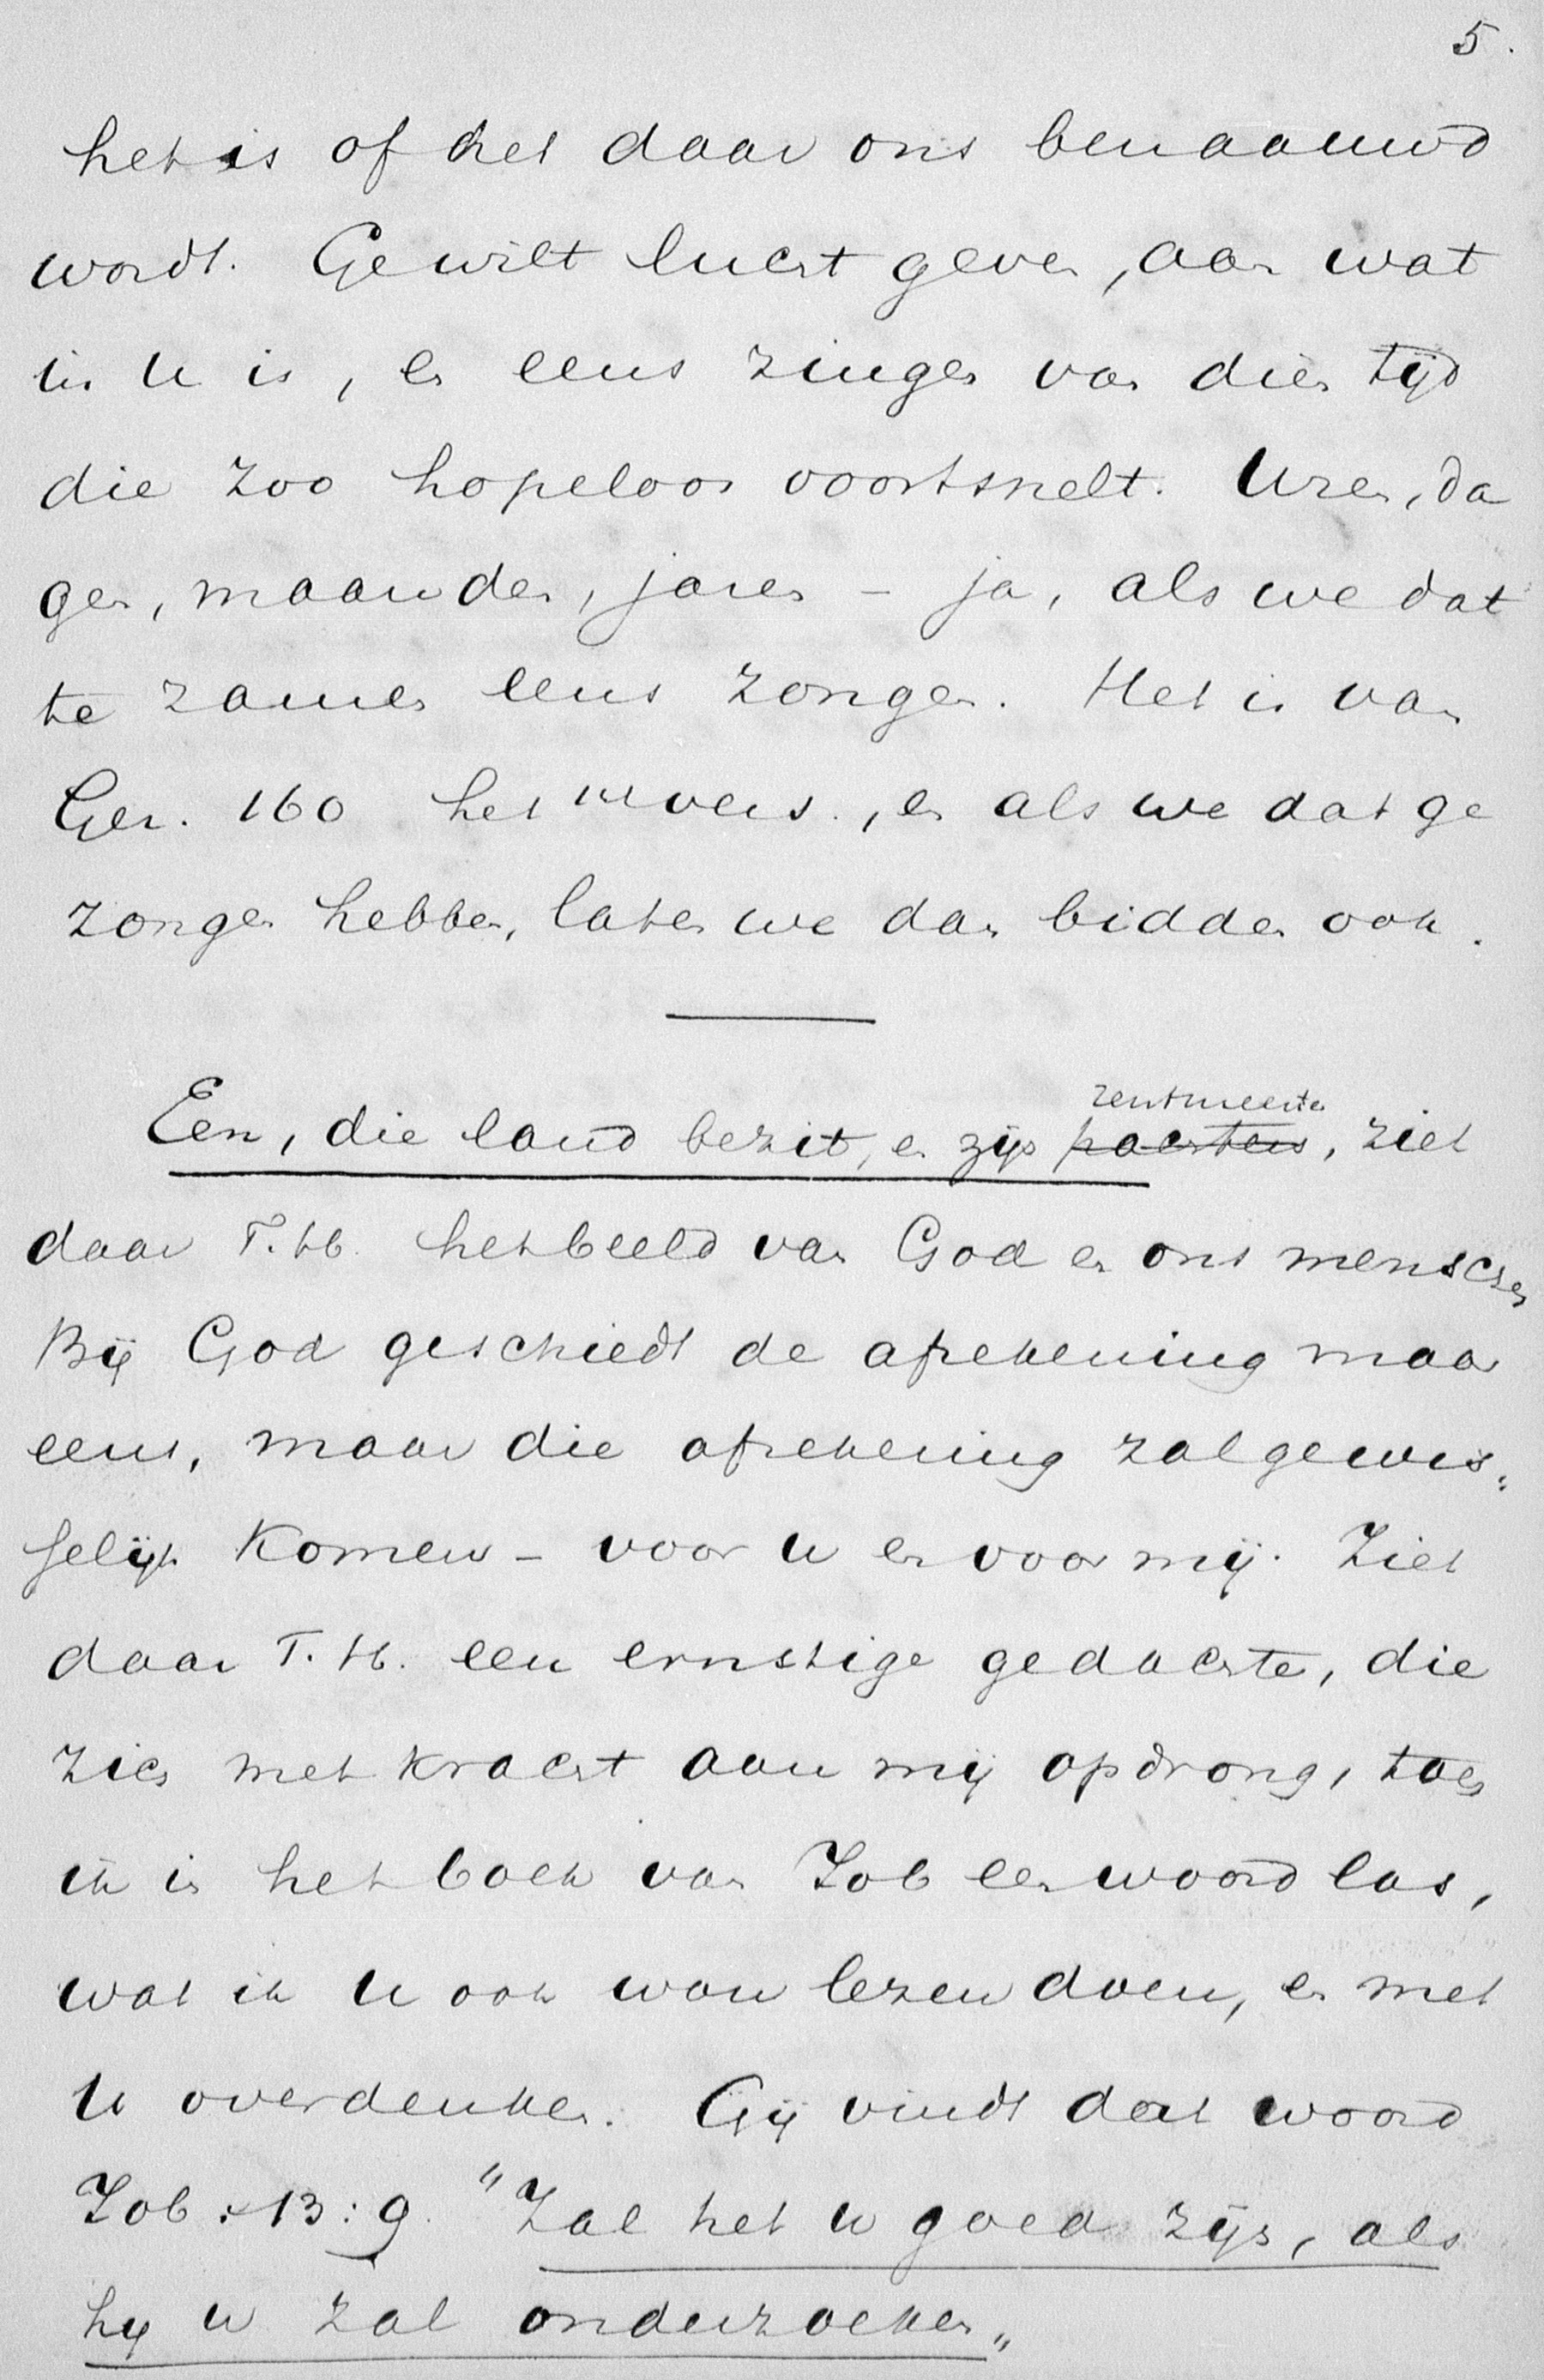 5.
het is of het daar ons benaauwd
wordt. Ge wilt lucht geven, aan wat
in u is, en eens zingen van dien tijd
die zoo hopeloos voortsnelt. Uren, da
gen, maanden, jaren – ja, als we dat
te zamen eens zongen. Het is van
Gez. 160 het vers., en als we dat ge
zongen hebben, laten we dan bidden ook.
rentmeester
Een, die land bezit, en zijn pachters, ziet
daar T. H. het beeld van God en ons menschen
Bij God geschiedt de afrekening maar
eens, maar die afrekening zal gewis=
selijk komen – voor u en voor mij. Ziet
daar T. H. een ernstige gedachte, die
zich met kracht aan mij opdrong, toen
ik in het boek van Job een woord las,
wat ik u ook wou lezen doen, en met
u overdenken. Gij vindt dat woord
Job : 13 : 9. "Zal het u goed zijn, als
hij u zal onderzoeken„